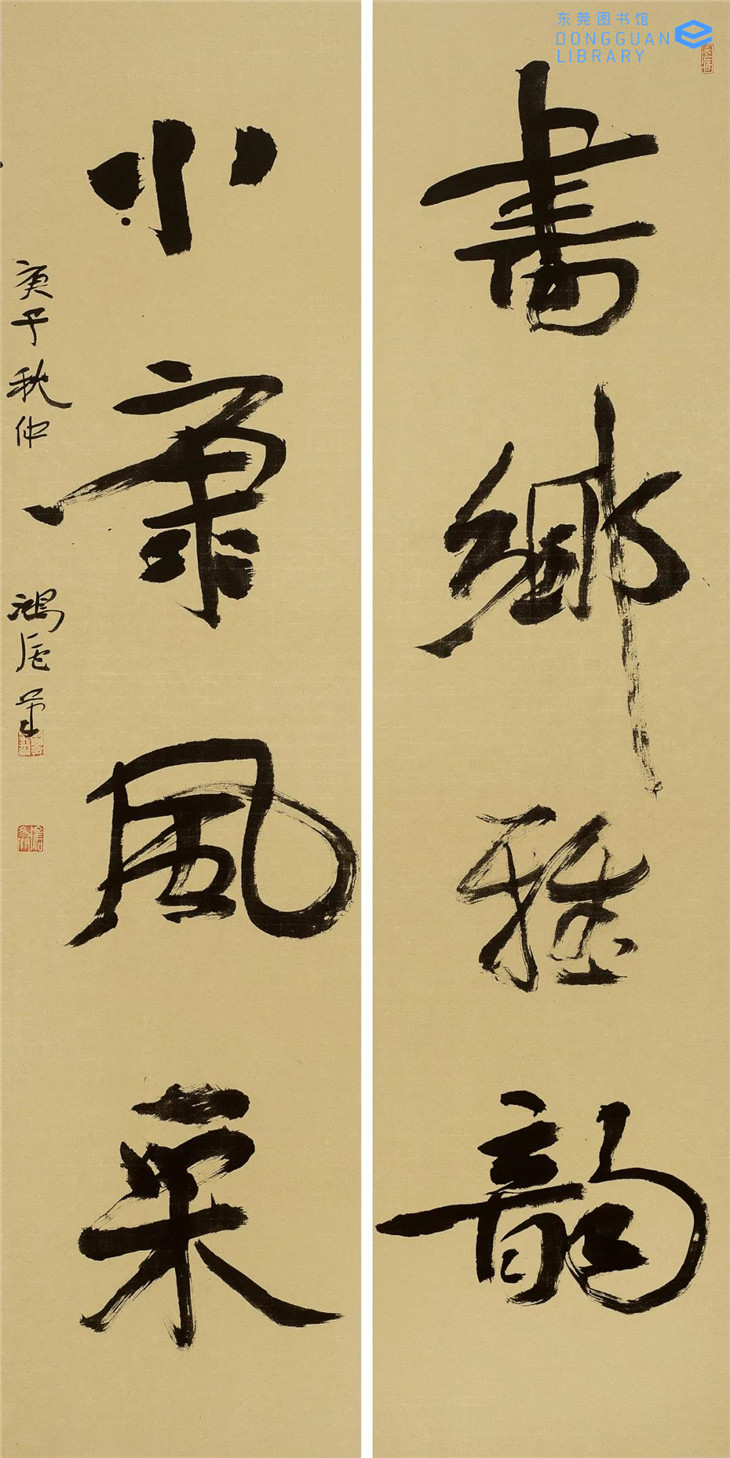 东莞图书馆
DONGGUAN
LIBRARY
書鄉雅韻
小康風采
庚子秋仲
鴻启筆